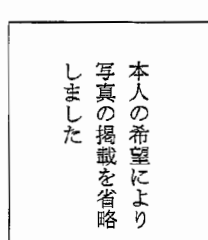 本人の希望により
写真の掲載を省略
しました